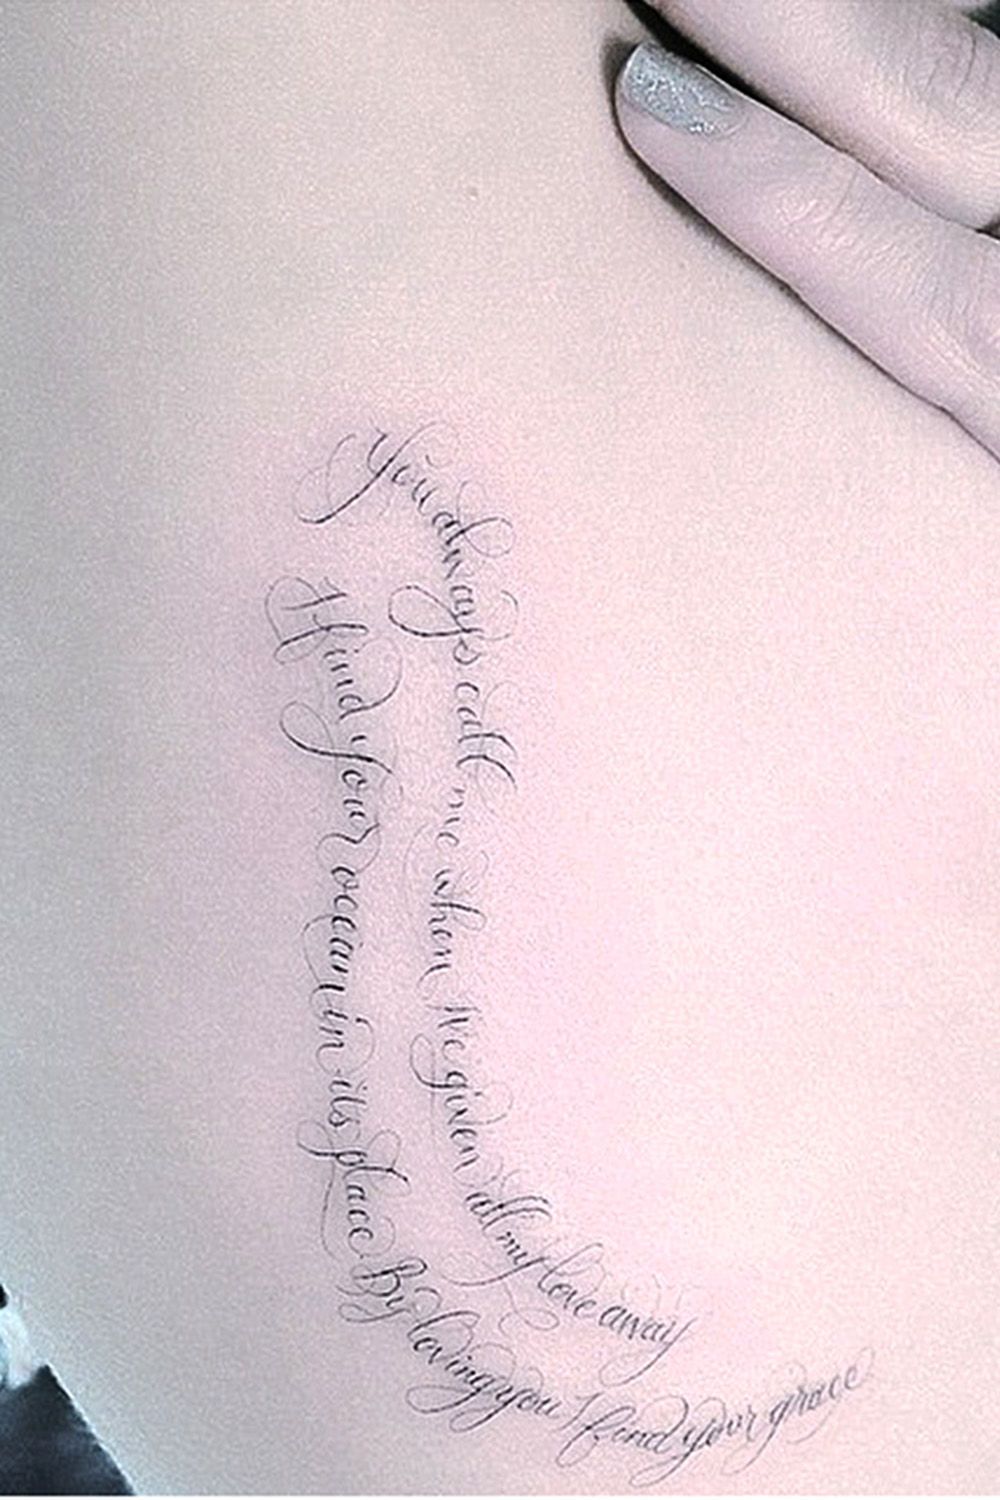 You always call me when I've given all my love away
I find your ocean in its place By loving you I find your grace